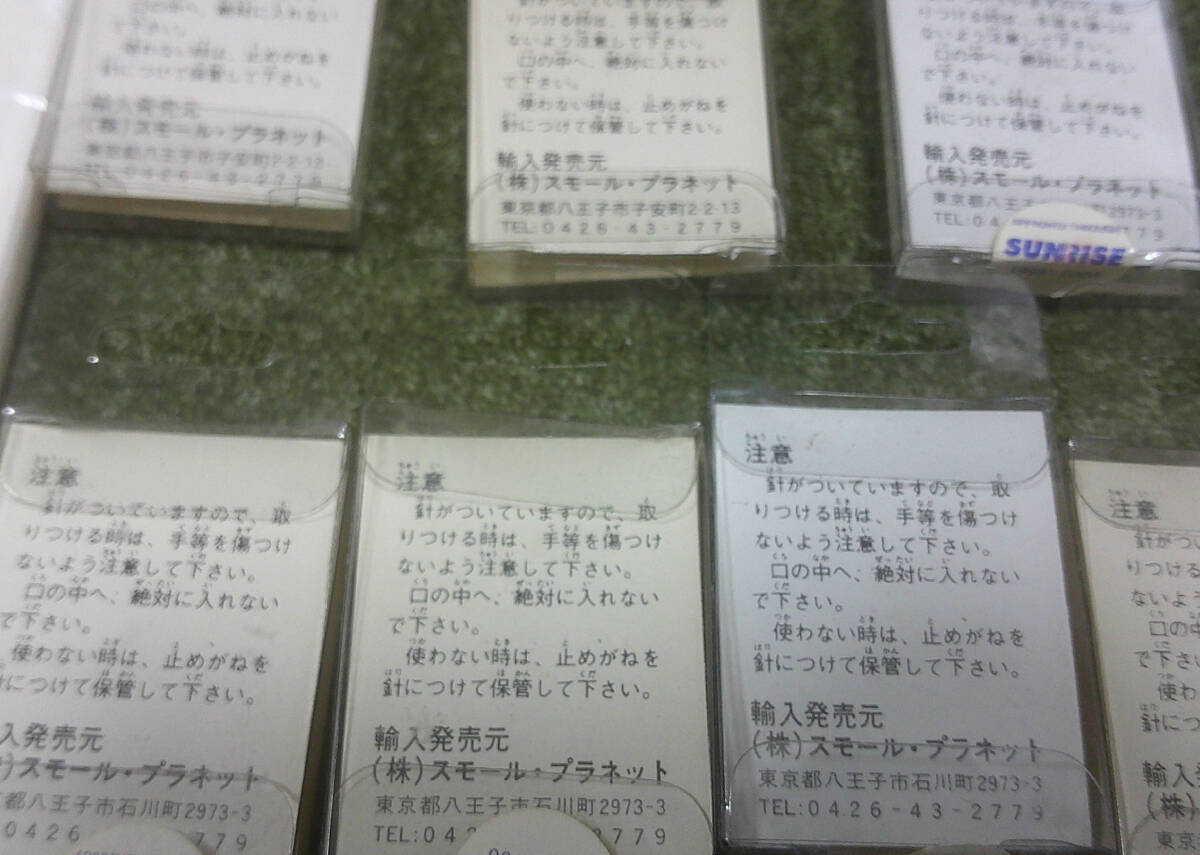 口の中へ、絶対に入れない
で下さい。
使わない時は、止めがねを
針につけて保管して下さい。
輸入発売元
(株)スモール・プラネット
東京都八王子市子安町2-2-13
TEL:0426-43-2779
針がついていますので、取
りつける時は、手等を傷つけ
ないよう注意して下さい。
口の中へ、絶対に入れない
で下さい。
使わない時は、止めがねを
針につけて保管して下さい。
輸入発売元
(株)スモール・プラネット
東京都八王子市子安町2-2-13
TEL:0426-43-2779
りつける時は、手等を傷つけ
ないよう注意して下さい。
口の中へ、絶対に入れない
で下さい。
使わない時は、止めがねを
針につけて保管して下さい。
輸入発売元
(株)スモール・プラネット
東京都八王子市 2973-3
TEL:04 79
SUNRISE
注意
針がついていますので、取
りつける時は、手等を傷つけ
ないよう注意して下さい。
口の中へ、絶対に入れない
で下さい。
使わない時は、止めがねを
針につけて保管して下さい。
入発売元
)スモール・プラネット
都八王子市石川町2973-3
0426 2779
注意
針がついていますので、取
りつける時は、手等を傷つけ
ないよう注意して下さい。
口の中へ、絶対に入れない
で下さい。
使わない時は、止めがねを
針につけて保管して下さい。
輸入発売元
(株)スモール・プラネット
東京都八王子市石川町2973-3
TEL:04 2779
注意
針がついていますので、取
りつける時は、手等を傷つけ
ないよう注意して下さい。
口の中へ、絶対に入れない
で下さい。
使わない時は、止めがねを
針につけて保管して下さい。
輸入発売元
(株)スモール・プラネット
東京都八王子市石川町2973-3
TEL:0426-43-2779
注意
針がつい
りつける
ないよ
口の中
で下さい
使わ
針につ
輸入
(株)
東京